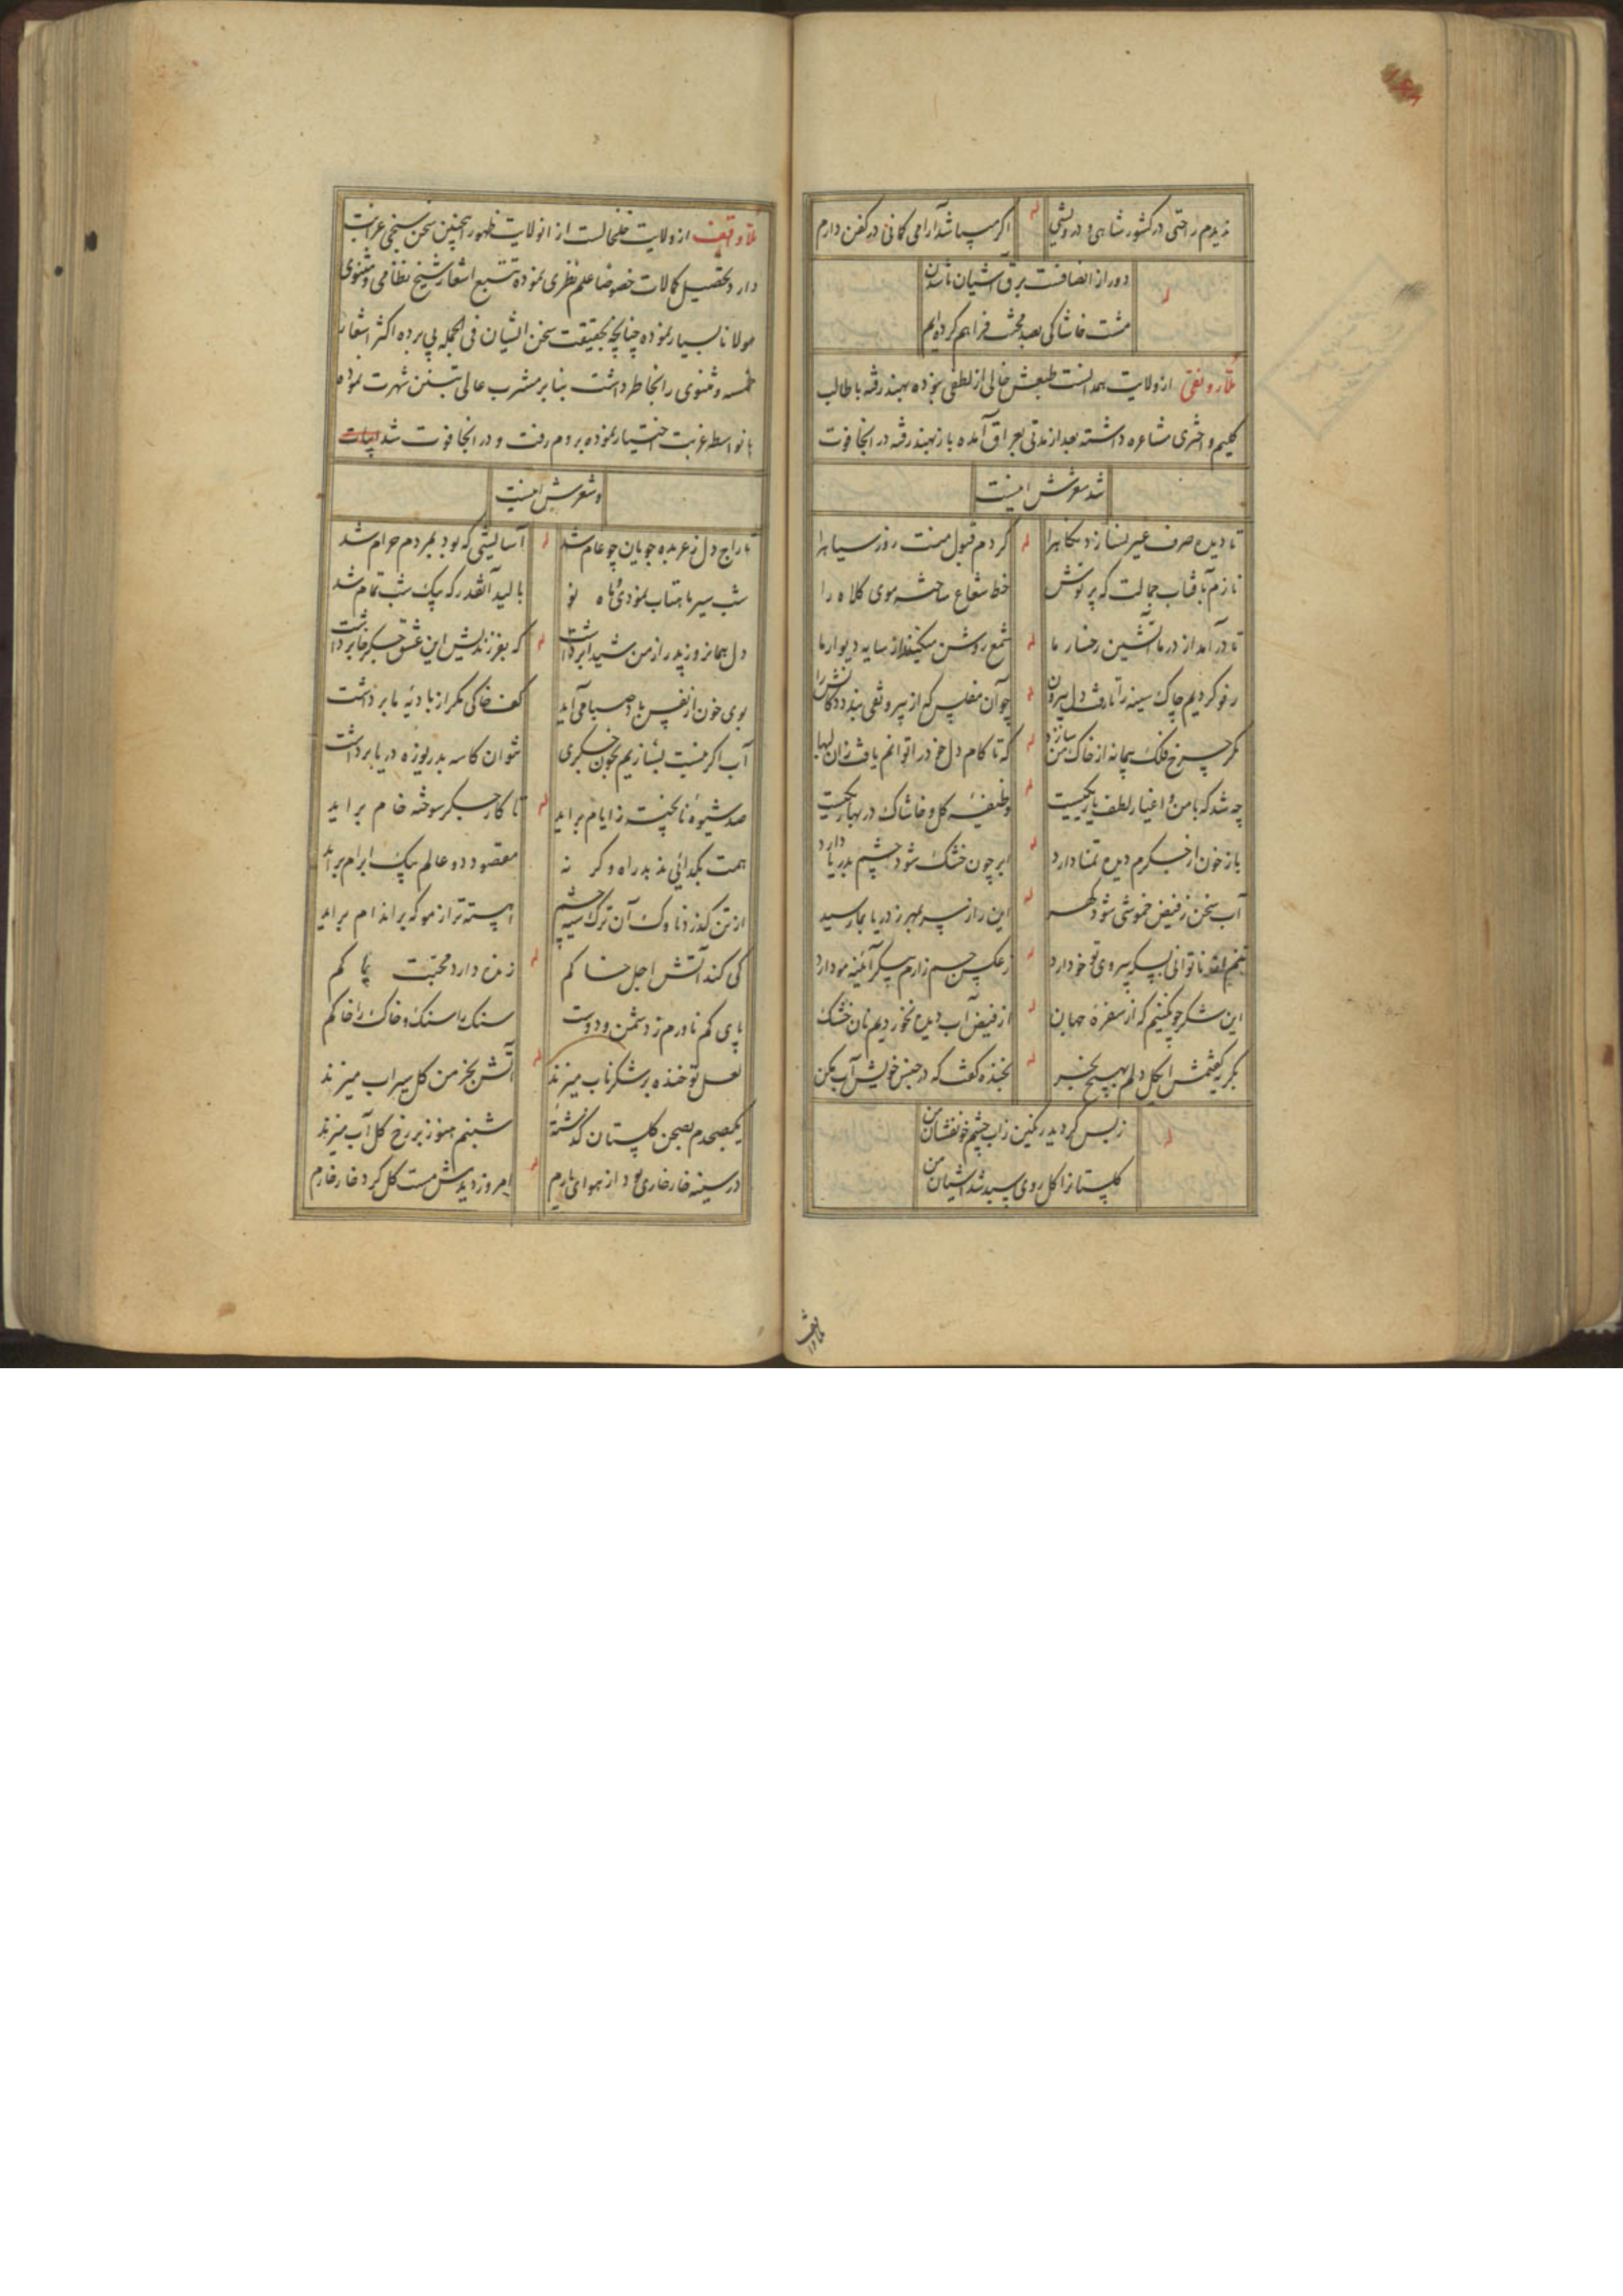 ندیدم راحتی در کشور شاهی و درویشی له اکر میباشد آرامی کمانی در کفن دارم
دور از انصافست برق آشیان ما شدن
مشت خاشاکی بصد محنت فراهم کرده ایم
ملا رونقی از ولایت همدانست طبعش خالی از لطفی نبوده بهند رفته با طالب
کلیم و اختری مشاعره داشته بعد از مدتی بعراق آمده باز بهند رفته در انجا فوت
شد شعرش اینست
تا دیده صرف غیر نسازد نکاه را له کردم قبول منت روز سیاه را
نازم آفتاب جمالت که پرتوش خط شعاع ساخته موی کلاه را
تا درآمد از در ما آتشین رخسار ما له شمع روشن میکنند از سایه دیوار ما
رفو کردیم چاک سینه را تا رفت دل بیرون له چو آن مفلس که از بیرونقی بندد دکانش را
مکر چرخ فلک پیمانه از خاک من سازد له که تا کام دل خود را توانم یافت زان لبها
چه شد که با من و اغیار لطف یار یکیست له وظیفه کل و خاشاک در بهار یکیست
باز خون از جکرم دیده تمنا دارد له ابر چون خشک شود چشم بدریا دارد
آب سخن ز فیض خموشی شود کهر له این راز سر بمهر ز دریا بما رسید
تنم از ناتوانی بسکه پیروی تو خو دارد له ز عکس جسم زارم پیکر آئینه مو دارد
این شکر چو نکنیم که از سفره جهان له از فیض آب دیده نخوردیم نان خشک
بکریه کفتمش ای کل دلم بهیچ بخر له بخنده کفت که در جنس خویش آب مکن
ز بس کردید رنکین ز آب چشم خونفشان من
کلستانرا کل روی سبد شد آشیان من
ملا واقف از ولایت خلخالست از انولایت ظهور اینچنین سخن سنجی غرابت
دارد بتحصیل کمالات خصوصا علم نظری نموده تتبع اشعار شیخ نظامی و مثنوی
مولانا بسیار نموده چنانچه بحقیقت سخن ایشان فی الجمله پی برده اکثر اشعار
خمسه و مثنوی را بخاطر داشت بنابر مشرب عالی بتسنن شهرت نموده
بانواسطه غربت اختیار نموده بروم رفت و در انجا فوت شد ابیات
و شعرش اینست
تاراج دل ز عربده جویان چو عام شد له آسایشی که بود بمردم حرام شد
شب سیر ماهتاب نمودی و ماه نو بالید آنقدر که بیک شب تمام شد
دل همانروز پدر از من شیدا برداشت له که بفرزندیش این عشق جکرخا برداشت
بوی خون از نفس باد صبا می آید کف خاکی مکر از بادیه ما برداشت
آب اکر نیست بسازیم بخون جکری نتوان کاسه بدریوزه دریا برداشت
صد شیوه نا پخته ز ایام براید له تا کار جکر سوخته خام براید
همت بکدائی ندهد راه وکر نه مقصود دو عالم بیک ابرام براید
از تن کذرد ناوک آن ترک سیه چشم اهسته تر از مو که بر اندام براید
کی کند آتش اجل خاکم له زنده دارد محبت پاکم
پای کم نادرم ز دشمن و دوست سنک را سنک و خاک را خاکم
لعل تو خنده بر شکر ناب میزند له آتش بخرمن کل سیراب میزند
یک صبحدم بصحن کلستان کذشتهٔ شبنم هنوز بر رخ کل آب میزند
در سینه خار خاری بود از هوای یارم له امروز دیدنش مست کل کرد خار خارم